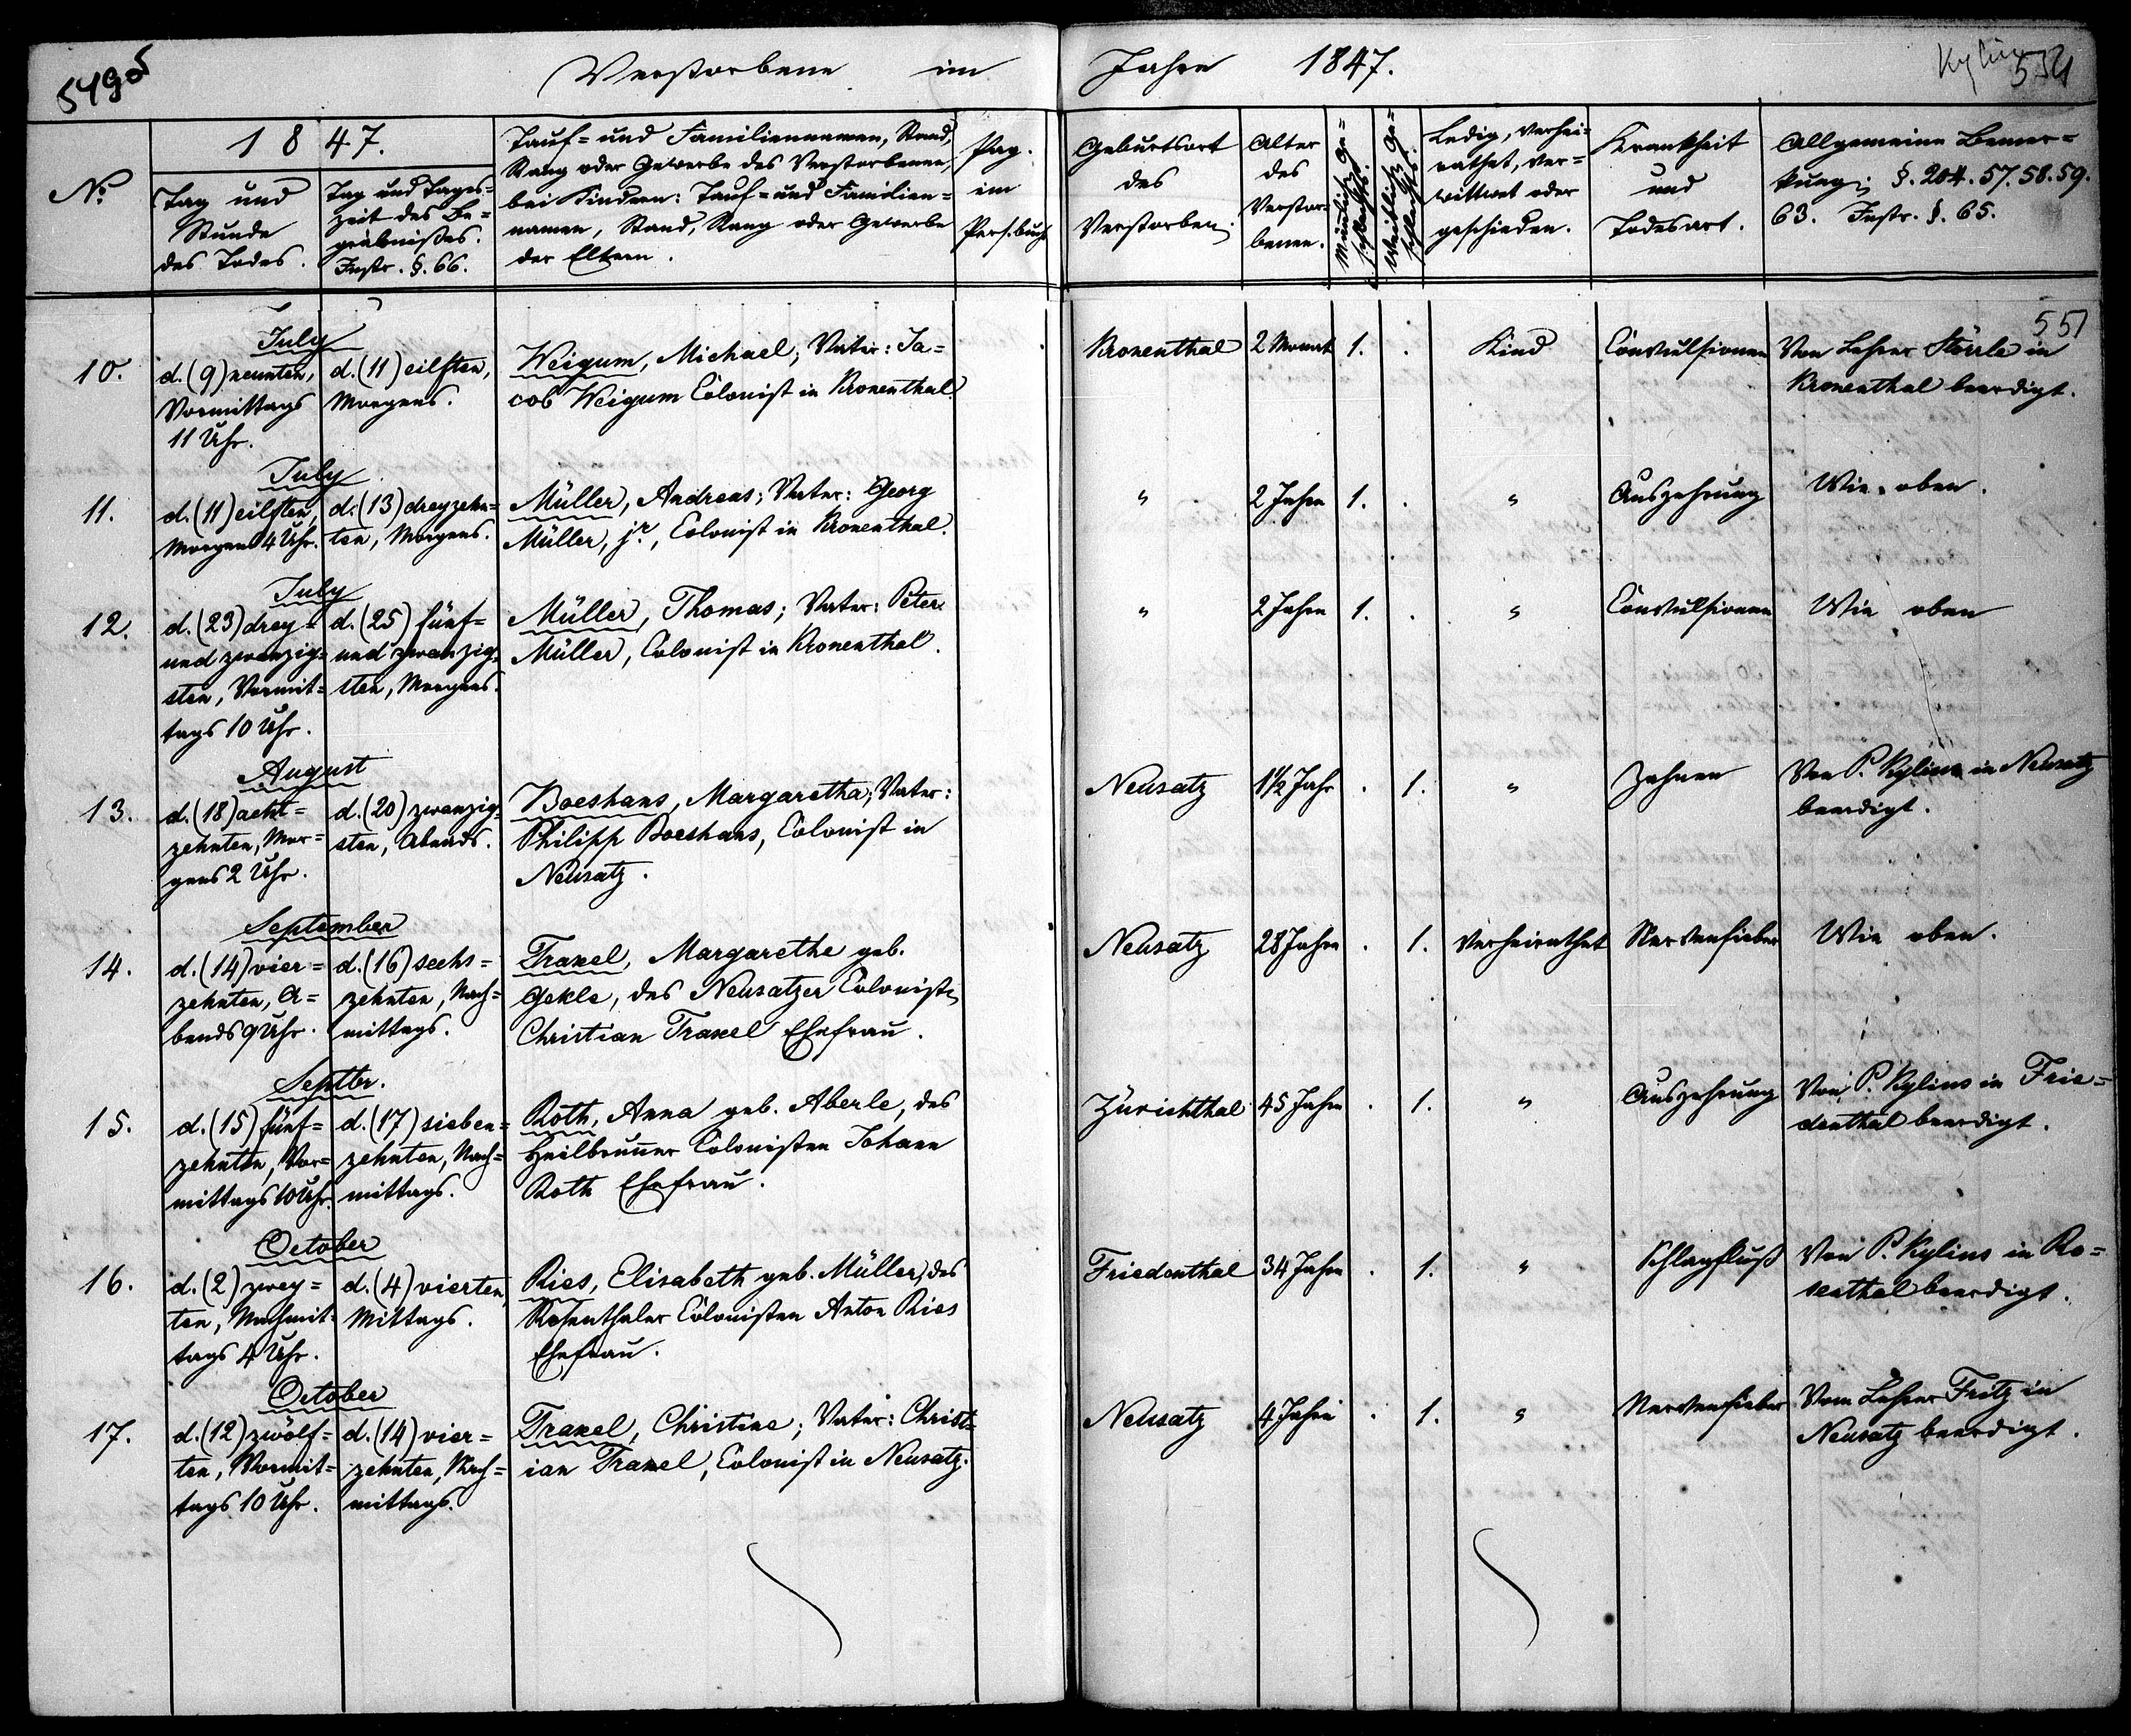 549
Verstorbene im Jahre 1847.
Kylius
551
1847.
No
Tag und
Stunde
des Todes.
Tag und Tages=
zeit des Be=
gräbnißes.
Instr. §. 66.
Tauf= und Familiennamen, Stand,
Rang oder Gewerbe des Verstorbenen,
bei Kindern: Tauf= und Familien=
namen, Stand, Rang oder Gewerbe
der Eltern.
Pag.
im
Pers. buch
Geburtsort
des
Verstorben.
Alter
des
Verstor=
benen.
Männlich. Ge=
schlechts.
Weiblich. Ge=
schlechts.
Ledig, verhei=
rathet, ver=
wittwet oder
geschieden.
Krankheit
und
Todesart.
Allgemeine Bemer=
kung. §. 204. 57. 58. 59.
63. Instr. §. 65.
551
10.
July
d. (9) neunten,
Vormittags
11 Uhr.
d. (11) eilften,
Morgens.
Weigum, Michael; Vater: Ja=
cob Weigum Colonist in Kronenthal.
Kronenthal
2 Monat
1.
.
Kind
Convulsionen
Von Lehrer Störrle in
Kronenthal beerdigt.
11.
July
d. (11) eilften,
Morgens 4 Uhr.
d. (13) dreyzehn=
ten, Morgens.
Müller, Andreas; Vater: Georg
Müller, jr., Colonist in Kronenthal.
"
2 Jahre
1.
.
"
Auszehrung
Wie oben.
12.
July
d. (23) drey=
und zwanzig=
sten, Vormit=
tags 10 Uhr.
d. (25) fünf=
und zwanzig=
sten, Morgens.
Müller, Thomas; Vater: Peter
Müller, Colonist in Kronenthal.
"
2 Jahre
1.
.
"
Convulsionen
Wie oben
13.
August
d. (18) acht=
zehnten, Mor=
gens 2 Uhr.
d. (20) zwanzig=
sten, Abends.
Boeshans, Margaretha; Vater:
Philipp Boeshans, Colonist in
Neusatz.
Neusatz
1½ Jahr
.
1.
"
Zahnen
Von P. Kylius in Neusatz
beerdigt.
14.
September
d. (14) vier=
zehnten, A=
bends 9 Uhr.
d. (16) sechs=
zehnten, Nach=
mittags.
Traxel, Margarethe geb.
Gekle, des Neusatzer Colonist.
Christian Traxel Ehefrau.
Neusatz
28 Jahre
.
1.
Verheirathet
Nervenfieber
Wie oben.
15.
Septbr.
d. (15) fünf=
zehnten, Vor=
mittags 10 Uhr.
d. (17) sieben=
zehnten, Nach=
mittags.
Roth, Anna geb. Aberle, des
Heilbrunner Colonisten Johann
Roth Ehefrau.
Zürichthal
45 Jahre
.
1.
"
Auszehrung
Von P. Kylius in Frie=
denthal beerdigt.
16.
October
d. (2) zwey=
ten, Nachmit=
tags 4 Uhr.
d. (4) vierten,
Mittags.
Ries, Elisabeth geb. Müller, des
Rosenthaler Colonisten Anton Ries
Ehefrau.
Friedenthal
34 Jahre
.
1.
"
Schlagfluß
Von P. Kylius in Ro=
senthal beerdigt.
17.
October
d. (12) zwölf=
ten, Vormit=
tags 10 Uhr.
d. (14) vier=
zehnten, Nach=
mittags.
Traxel, Christine; Vater: Christ=
ian Traxel, Colonist in Neusatz.
Neusatz
4 Jahre
.
1.
"
Nervenfieber
Vom Lehrer Fritz in
Neusatz beerdigt.